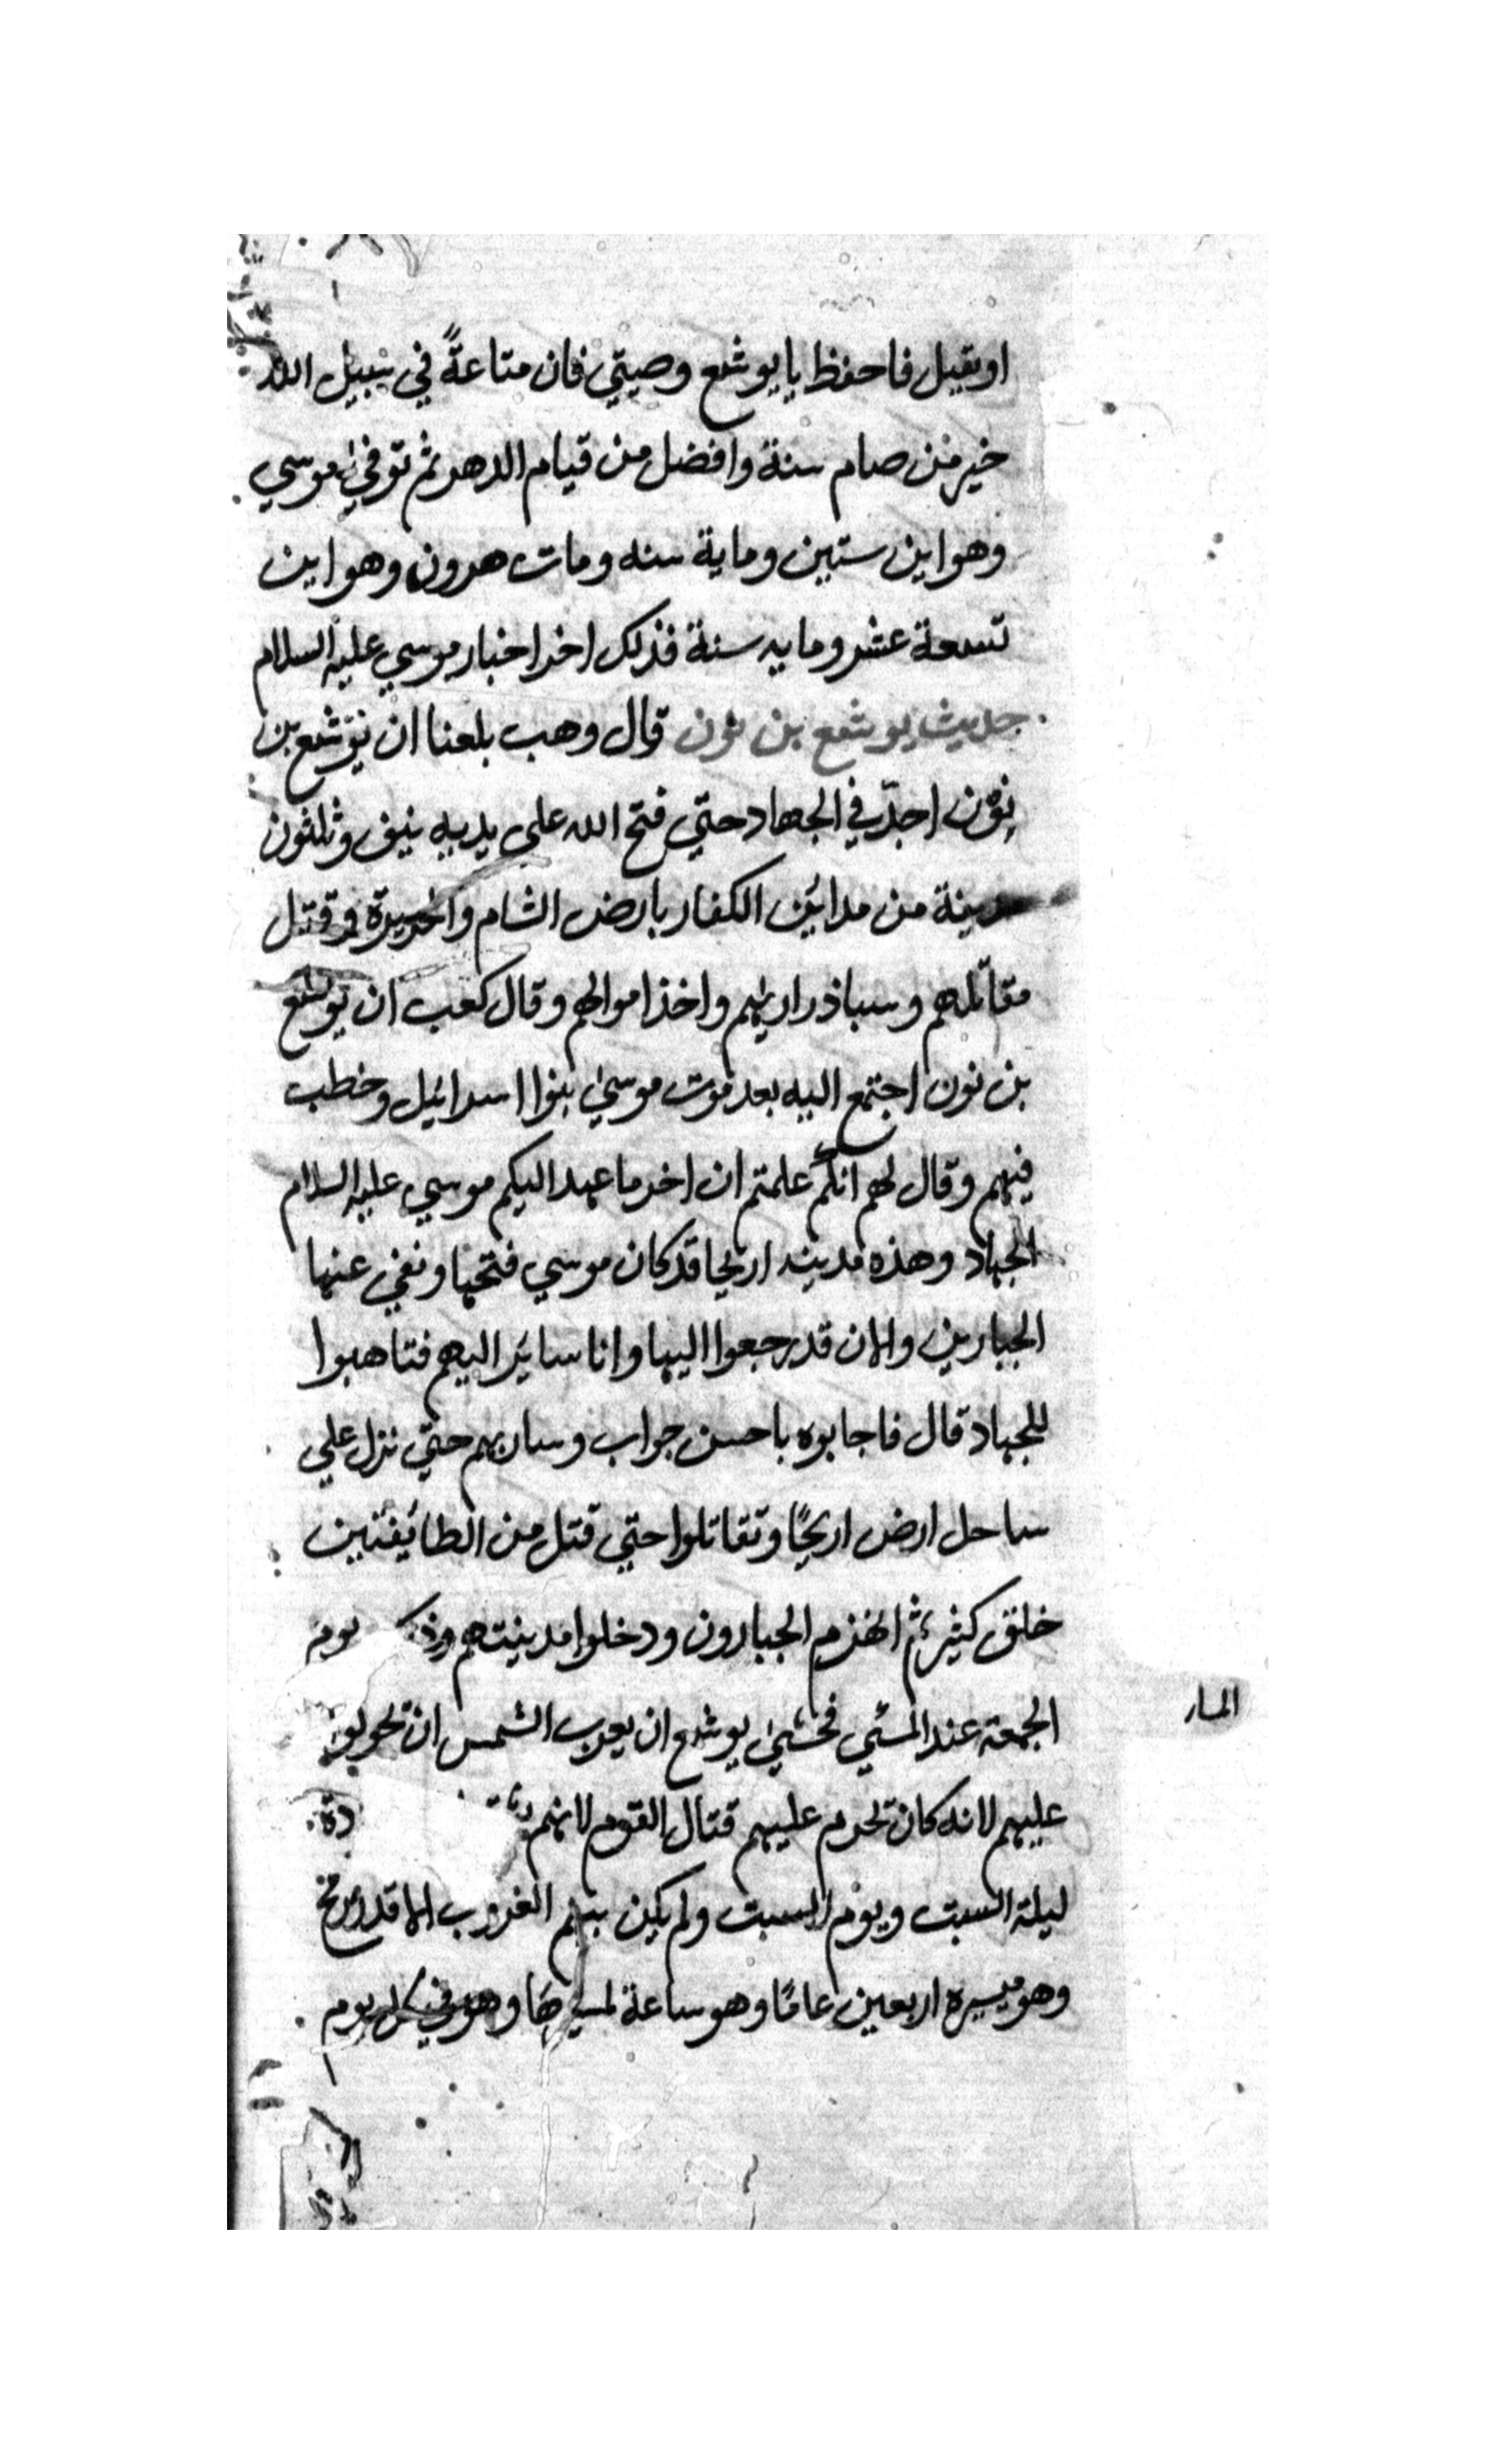 او يقبل فاحفظ يا يوشع وصيتي فان متاعةً في سبيل الله
خير من صام سنة وافضل من قيام الدهر ثم توفي موسي
وهو ابن ستين وماية سنه ومات هرون وهو ابن
تسعة عشر ومايه سنة فذلك اخر اخبار موسي عليه السلام
حديث يوشع بن نون قال وهب بلغنا ان يوشع بن
نون اجدّ في الجهاد حتي فتح الله علي يديه نيف وثلثون
مدينة من مدائن الكفار بارض الشام وقتل
مقاتلهم وسبا ذراريهم واخذ اموالهم وقال كعب ان يوشع
بن نون اجتمع اليه بعد موت موسيٰ بنوا اسرائيل وخطب
فيهم وقال لهم انكم علمتم ان اخر ما عهد اليكم موسي عليه السلام
الجهاد وهذه مدينه اريحا قد كان موسي فتحها ونفي عنها
الجبارين والان قد رجعوا اليها وانا سائر اليهم فتاهبوا
للجهاد قال فاجابوه باحسن جواب وسار بهم حتي نزل علي
ساحل ارض اريحًا وتقاتلوا حتي قتل من الطائفتين
خلق كثير ثم انهزم الجبارون ودخلوا مدينتهم يوم
الجمعة عند المشي فخشيٰ يوشع ان يعرب الشمس ان
عليهم لانه كان تحرم عليهم قتال القوم لانهم
ليلة السبت ويوم السبت ولم يكن بينهم الغروب الا قدر
وهو ميسره اربعين عامًا وهو ساعة وهو في كل يوم